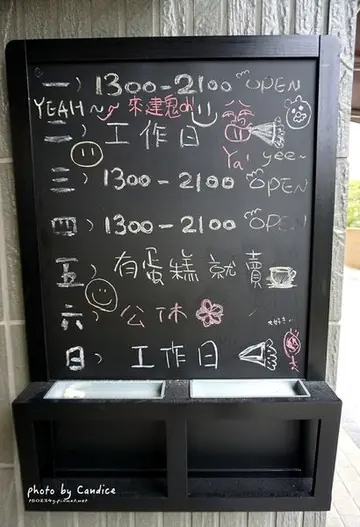 一） 1300-2100 OPEN
YEAH~ 來建鬼oh
二） 工作日
Ya! yee~
三） 1300-2100 OPEN
四） 1300-2100 OPEN
五） 有蛋糕就賣
六） 公休
日） 工作日
photo by Candice